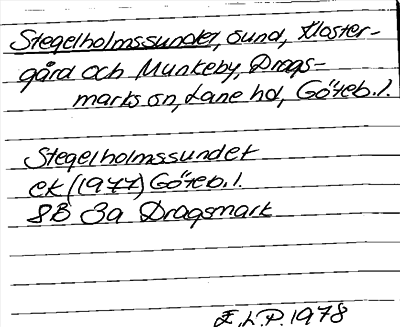 Stegelholmssundet, sund, Kloster-
gård och Munkeby, Drags-
marks sn, Lane hd, Göteb. l.
Stegelholmssundet
ek (1977) Göteb. l.
8B 3a Dragsmark
E. h. P. 1978